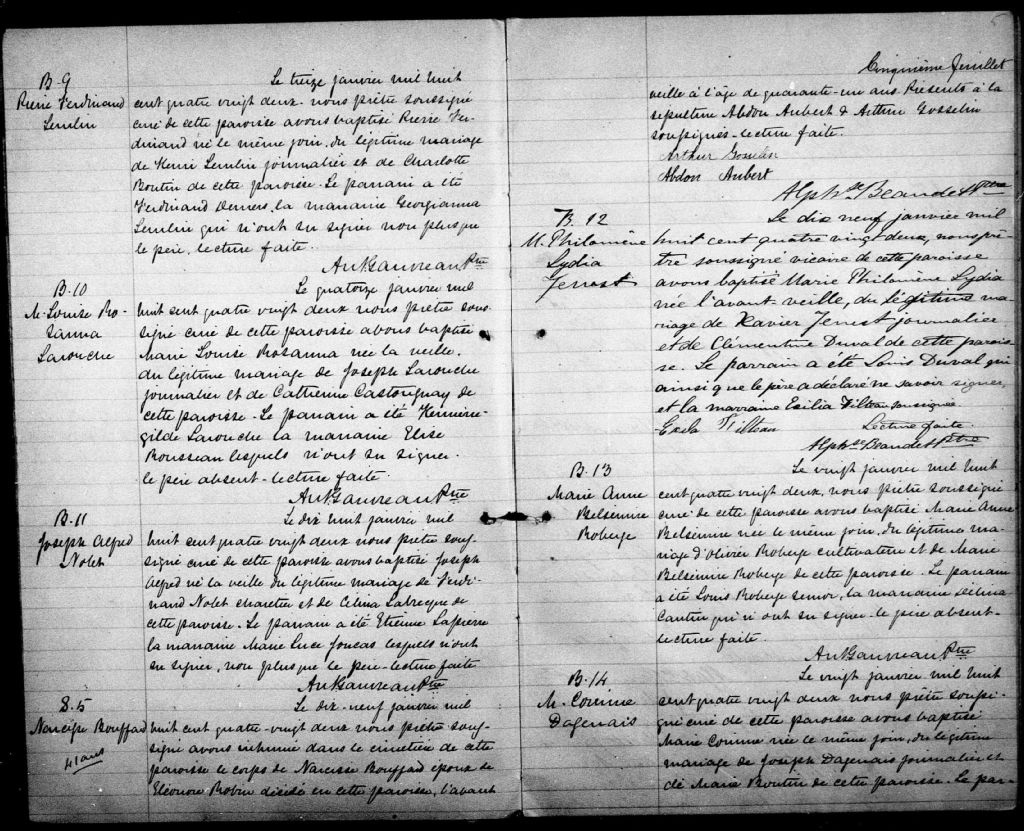 B-9
Pierre Ferdinand
Lemelin
Le treize janvier mil huit
cent quatre vingt deux. nous prêtre soussigné
curé de cette paroisse avons baptisé Pierre Fer-
dinand né le même jour. du légitime mariage
de Henri Lemelin journalier et de Charlotte
Boutin de cette paroisse. Le parrain a été
Ferdinand Demers, la marraine Georgianna
Lemelin qui n'ont su signer non plus que
le père. lecture faite.
Ant Gauvreau Ptre
B-10
M. Louise Ro-
sanna
Larouche
Le quatorze janvier mil
huit cent quatre vingt deux nous prêtre sous-
signé curé de cette paroisse avons baptisé
Marie Louise Rosanna née la veille.
du légitime mariage de Joseph Larouche
journalier et de Catherine Castonguay de
cette paroisse. Le parrain a été Herméné-
gilde Larouche la marraine Elise
Rousseau lesquels n'ont su signer.
le père absent- lecture faite.
Ant Gauvreau Ptre
B-11
Joseph Alfred
Nolet
Le dix huit janvier mil
huit cent quatre vingt deux nous prêtre sous-
signé curé de cette paroisse avons baptisé Joseph
Alfred né la veille du légitime mariage de Ferdi-
nand Nolet charretier et de Célina Labrecque de
cette paroisse. Le parrain a été Etienne Lapierre
la marraine Marie Luce Joncas lesquels n'ont
su signer, non plus que le père- lecture faite
Ant Gauvreau Ptre
S-5
Narcisse Bouffard
41 ans
Le dix-neuf janvier mil
huit cent quatre-vingt deux nous prêtre sous-
signé avons inhumé dans le cimetière de cette
paroisse le corps de Narcisse Bouffard époux de
Eléonore Robin décédé en cette paroisse, l'avant
5
Cinquième feuillet
veille à l'âge de quarante-un ans Présents à la
sépulture Abdon Aubert & Arthur Gosselin
soussignés- lecture faite.
Arthur Gosselin
Abdon Aubert
Alph.se Beaudet Ptre
B. 12
M. Philomène
Lydia
Jenest
Le dix neuf janvier mil
huit cent quatre vingt deux, nous prê-
tre soussigné vicaire de cette paroisse
avons baptisé Marie Philomène Lydia
née l'avant-veille, du légitime ma-
riage de Xavier Jenest journalier
et de Clémentine Duval de cette parois-
se. Le parrain a été Louis Duval qui
ainsi que le père a déclaré ne savoir signer,
et la marraine Exilia Filteau soussignée
Exila Filteau Lecture faite.
Alph.se Beaudet Ptre
B-13
Marie Anne
Belzémire
Roberge
Le vingt janvier mil huit
cent quatre vingt deux, nous prêtre soussigné
curé de cette paroisse avons baptisé Marie Anne
Belzémire née le même jour, du légitime ma-
riage d'Olivier Roberge cultivateur et de Marie
Belzémire Roberge de cette paroisse. Le parrain
a été Louis Roberge senior, la marraine Délina
Cantin qui n'ont su signer- le père absent-
lecture faite.
Ant Gauvreau Ptre
B-14
M. Corinne
Dagenais
Le vingt janvier mil huit
cent quatre vingt deux nous prêtre soussi-
gné curé de cette paroisse avons baptisé
Marie Corinne née le même jour, du légitime
mariage de Joseph Dagenais journalier et
de Marie Boutin de cette paroisse. Le par-